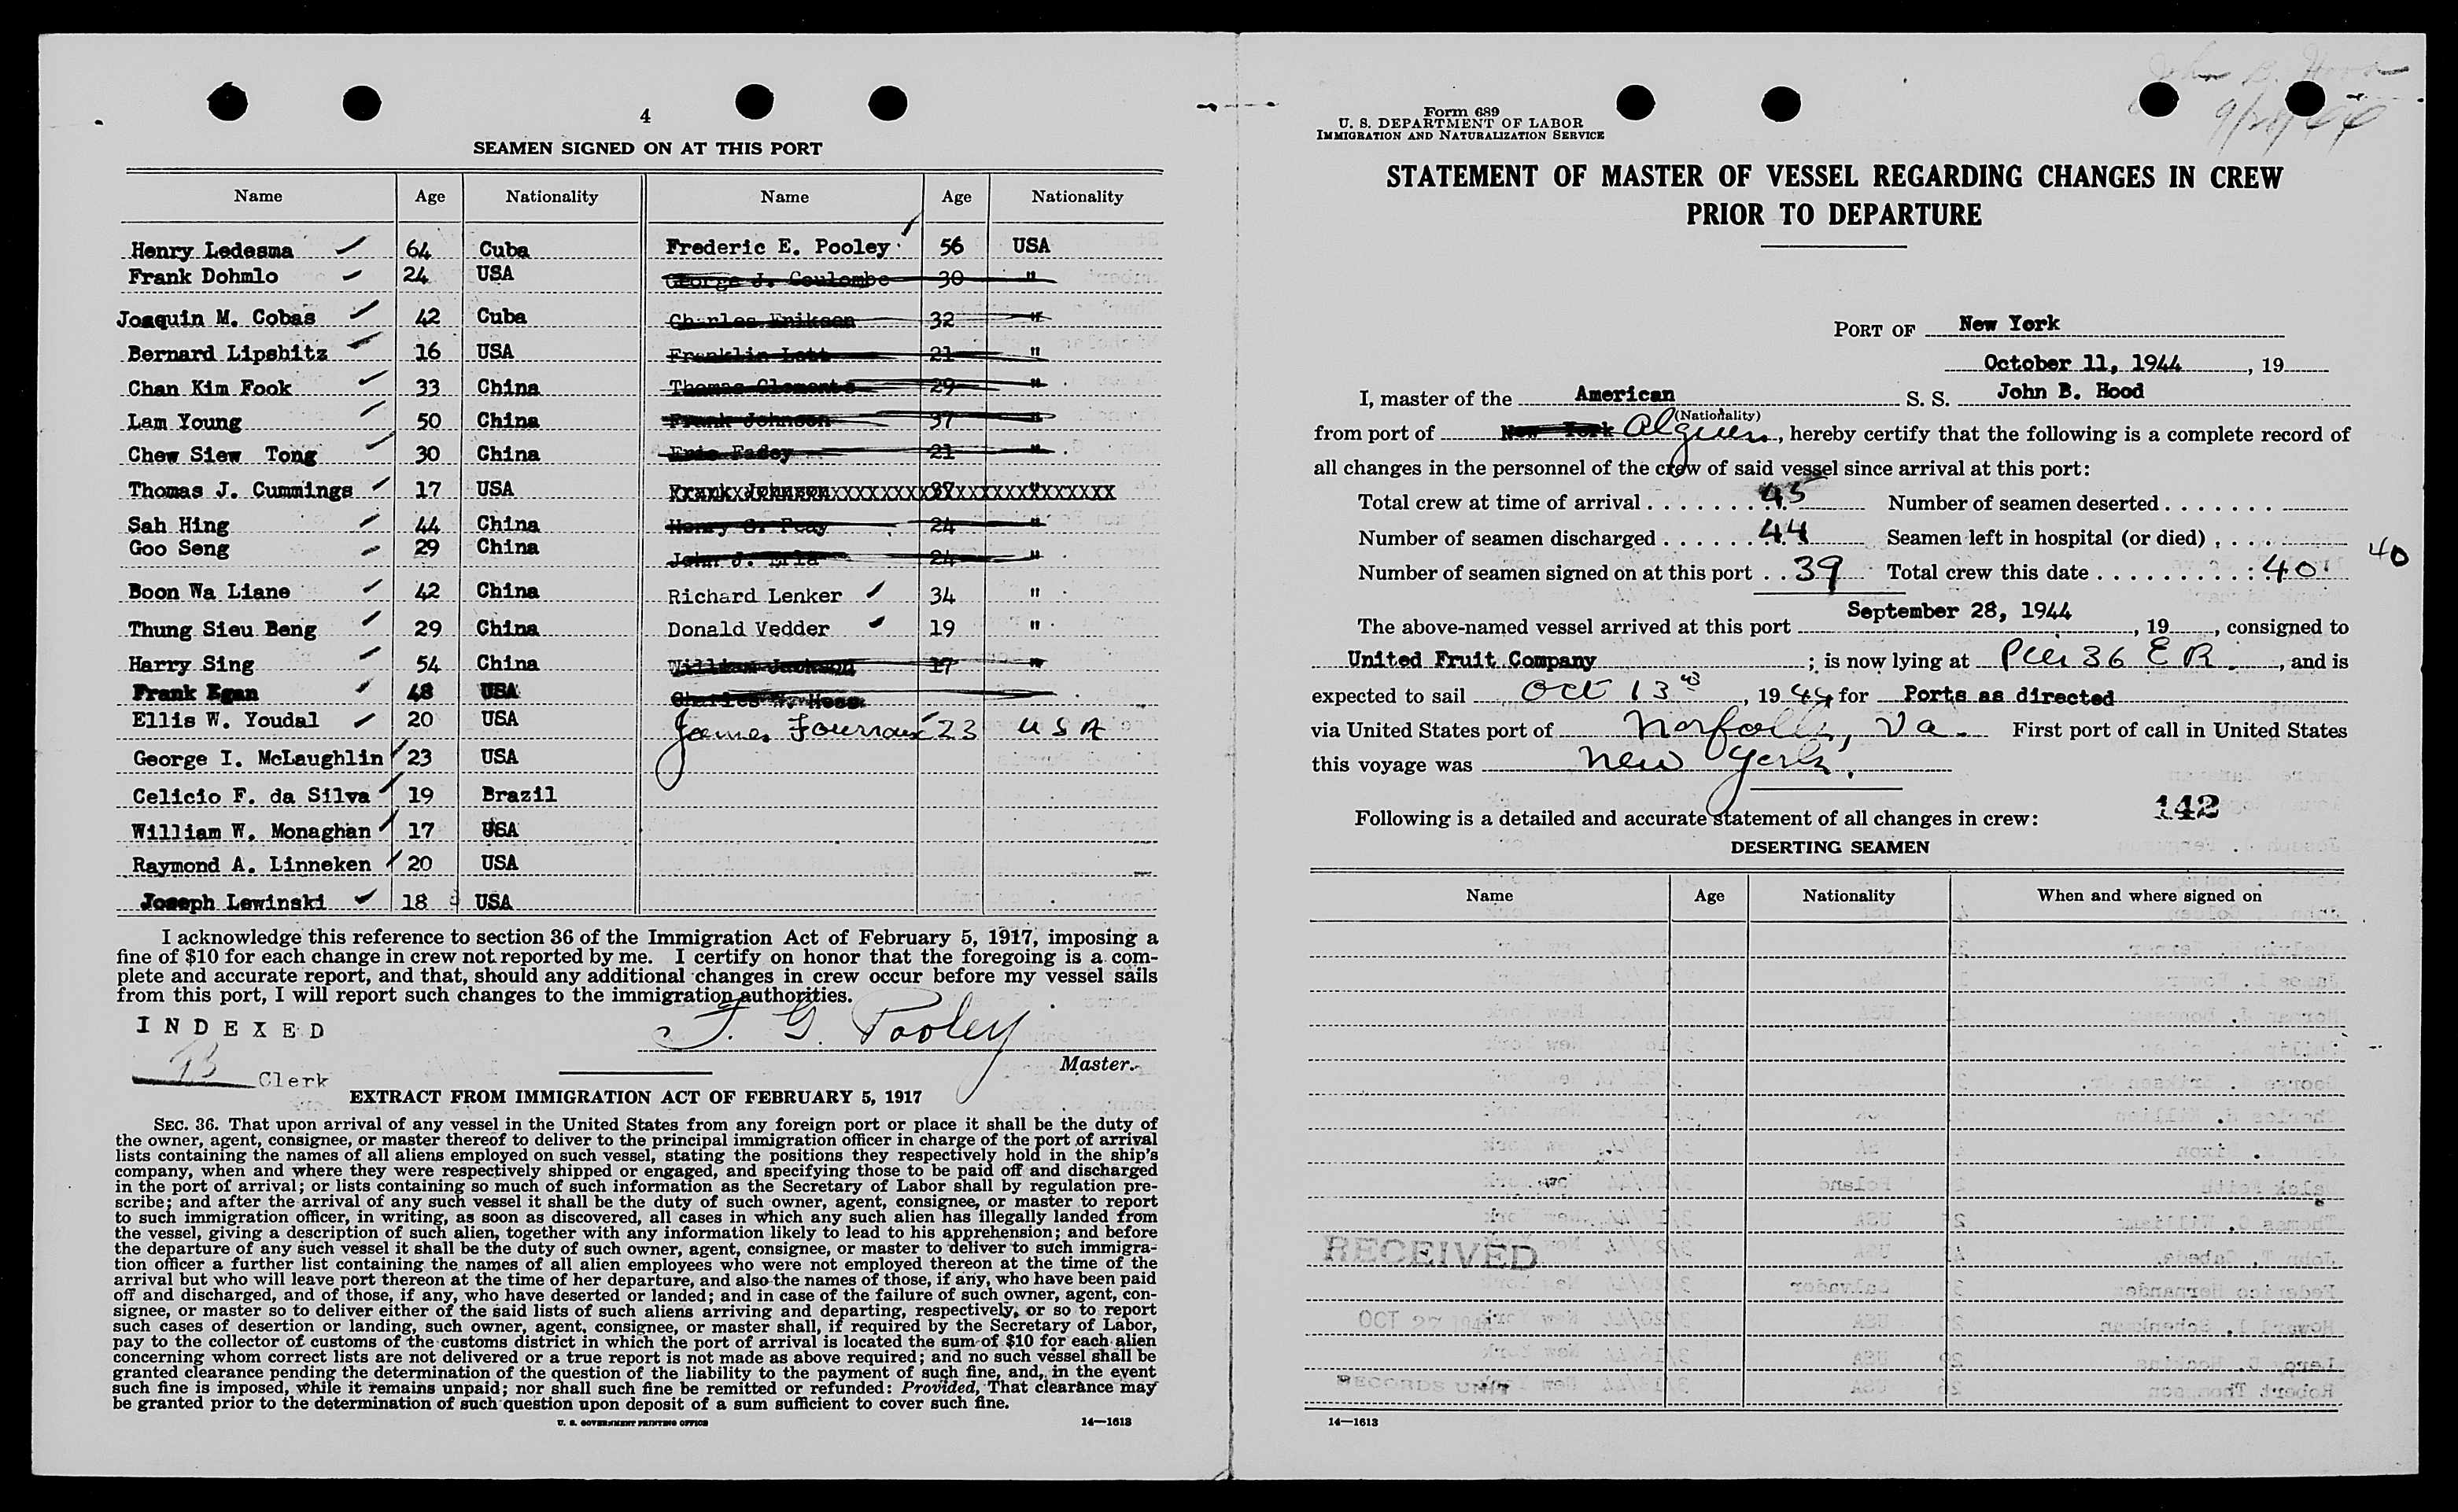 4
SEAMEN SIGNED ON AT THIS PORT
Name Age Nationality Name Age Nationality
Henry Ledesma 64 Cuba Frederic E. Pooley 56 USA
Frank Dohmlo 24 USA George J. Coulombe 30 "
Joaquin M. Cobas 42 Cuba Charles Eriksen 32 "
Bernard Lipshitz 16 USA Franklin Lott 21 "
Chan Kim Fook 33 China Thomas Clements 29 "
Lam Young 50 China Frank Johnson 37 "
Chew Siew Tong 30 China Eric Fadey 21 "
Thomas J. Cummings 17 USA Frank Johnson 37 "
Sah Hing 44 China Henry G. Peay 24 "
Goo Seng 29 China John J. 24 "
Boon Wa Liane 42 China Richard Lenker 34 "
Thung Sieu Beng 29 China Donald Vedder 19 "
Harry Sing 54 China William Jackson 17 "
Frank Egan 48 USA Charles W. Hess
Ellis W. Youdal 20 USA James 23 USA
George I. McLaughlin 23 USA
Celicio F. da Silva 19 Brazil
William W. Monaghan 17 USA
Raymond A. Linneken 20 USA
Joseph Lewinski 18 USA
I acknowledge this reference to section 36 of the Immigration Act of February 5, 1917, imposing a
fine of $10 for each change in crew not reported by me. I certify on honor that the foregoing is a com-
plete and accurate report, and that, should any additional changes in crew occur before my vessel sails
from this port, I will report such changes to the immigration authorities.
INDEXED
F. G. Pooley
Master.
Clerk
EXTRACT FROM IMMIGRATION ACT OF FEBRUARY 5, 1917
SEC. 36. That upon arrival of any vessel in the United States from any foreign port or place it shall be the duty of
the owner, agent, consignee, or master thereof to deliver to the principal immigration officer in charge of the port of arrival
lists containing the names of all aliens employed on such vessel, stating the positions they respectively hold in the ship's
company, when and where they were respectively shipped or engaged, and specifying those to be paid off and discharged
in the port of arrival; or lists containing so much of such information as the Secretary of Labor shall by regulation pre-
scribe; and after the arrival of any such vessel it shall be the duty of such owner, agent, consignee, or master to report
to such immigration officer, in writing, as soon as discovered, all cases in which any such alien has illegally landed from
the vessel, giving a description of such alien, together with any information likely to lead to his apprehension; and before
the departure of any such vessel it shall be the duty of such owner, agent, consignee, or master to deliver to such immigra-
tion officer a further list containing the names of all alien employees who were not employed thereon at the time of the
arrival but who will leave port thereon at the time of her departure, and also the names of those, if any, who have been paid
off and discharged, and of those, if any, who have deserted or landed; and in case of the failure of such owner, agent, con-
signee, or master so to deliver either of the said lists of such aliens arriving and departing, respectively, or so to report
such cases of desertion or landing, such owner, agent, consignee, or master shall, if required by the Secretary of Labor,
pay to the collector of customs of the customs district in which the port of arrival is located the sum of $10 for each alien
concerning whom correct lists are not delivered or a true report is not made as above required; and no such vessel shall be
granted clearance pending the determination of the question of the liability to the payment of such fine, and, in the event
such fine is imposed, while it remains unpaid; nor shall such fine be remitted or refunded: Provided, That clearance may
be granted prior to the determination of such question upon deposit of a sum sufficient to cover such fine.
U. S. GOVERNMENT PRINTING OFFICE 14—1613
John B. Hood
9/28/44
Form 689
U. S. DEPARTMENT OF LABOR
IMMIGRATION AND NATURALIZATION SERVICE
STATEMENT OF MASTER OF VESSEL REGARDING CHANGES IN CREW
PRIOR TO DEPARTURE
PORT OF New York
October 11, 1944, 19
I, master of the American S. S. John B. Hood
(Nationality)
from port of New York Algiers, hereby certify that the following is a complete record of
all changes in the personnel of the crew of said vessel since arrival at this port:
Total crew at time of arrival 45 Number of seamen deserted
Number of seamen discharged 44 Seamen left in hospital (or died)
Number of seamen signed on at this port 39 Total crew this date 40 40
The above-named vessel arrived at this port September 28, 1944, 19, consigned to
United Fruit Company; is now lying at Pier 36 E R, and is
expected to sail Oct 13, 1944 for Ports as directed
via United States port of Norfolk, Va. First port of call in United States
this voyage was New York.
Following is a detailed and accurate statement of all changes in crew: 142
DESERTING SEAMEN
Name Age Nationality When and where signed on
RECEIVED
OCT 27 194
RECORDS UNIT
14—1613